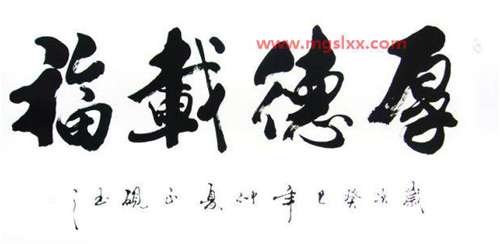 www.mgslxx.com
厚德載福
歲次癸巳年仲夏正硯玉